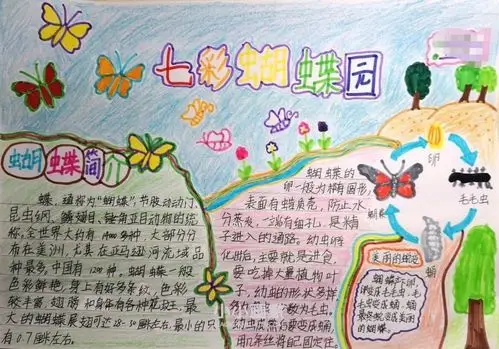 七彩蝴蝶园
蝴蝶简介
蝶，通称为“蝴蝶”，节肢动物门、
昆虫纲、鳞翅目、锤角亚目动物的统
称，全世界大约有14000多种，大部分分
布在美洲，尤其在亚马逊河流域品
种最多，中国有1200种。蝴蝶一般
色彩鲜艳，身上有好多条纹，色彩
较丰富，翅膀和身体有各种花斑，最
大的蝴蝶展翅可达28-30厘米左右，最小的只
有0.7厘米左右。
蝴蝶的
卵一般为椭圆形，
表面有蜡质壳，防止水
分蒸发，一端有细孔，是精
子进入的通路。幼虫孵
化出后，主要就是进食，
要吃掉大量植物叶
子，幼虫的形状多样
多为毛虫。
幼虫成熟后要变成蛹，
用几条丝将自己固定住，
卵
毛毛虫
蛹
美丽的蝴蝶
蝴蝶产卵，
毛毛虫，毛
毛虫变成蛹，蛹
美丽
的蝴蝶。